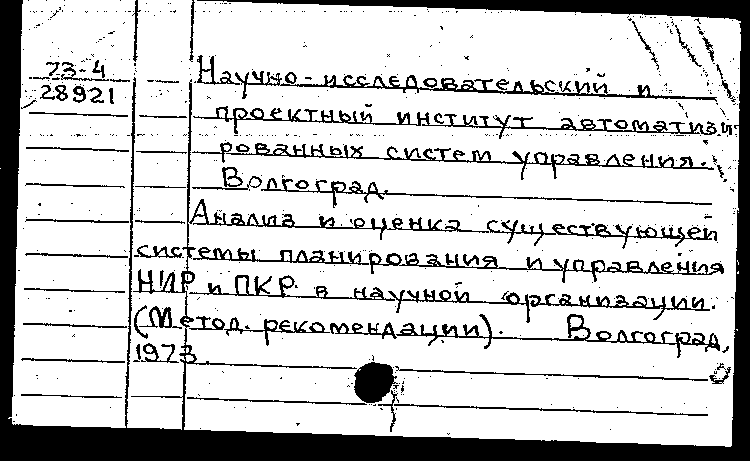 73-4
28921
Научно-исследовательский и
проектный институт автоматизи
рованных систем управления.
Волгоград.
Анализ и оценка существующей
системы планирования и управления
НИР и ПКР в научной организации.
(Метод. рекомендации). Волгоград,
1973.